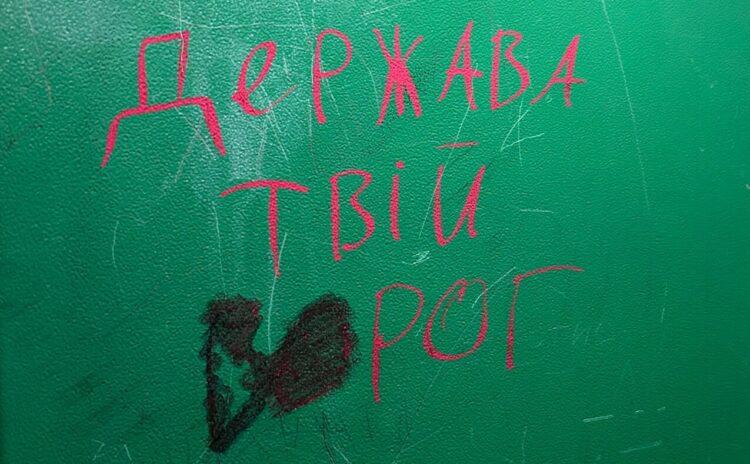 Держава
твій
рог